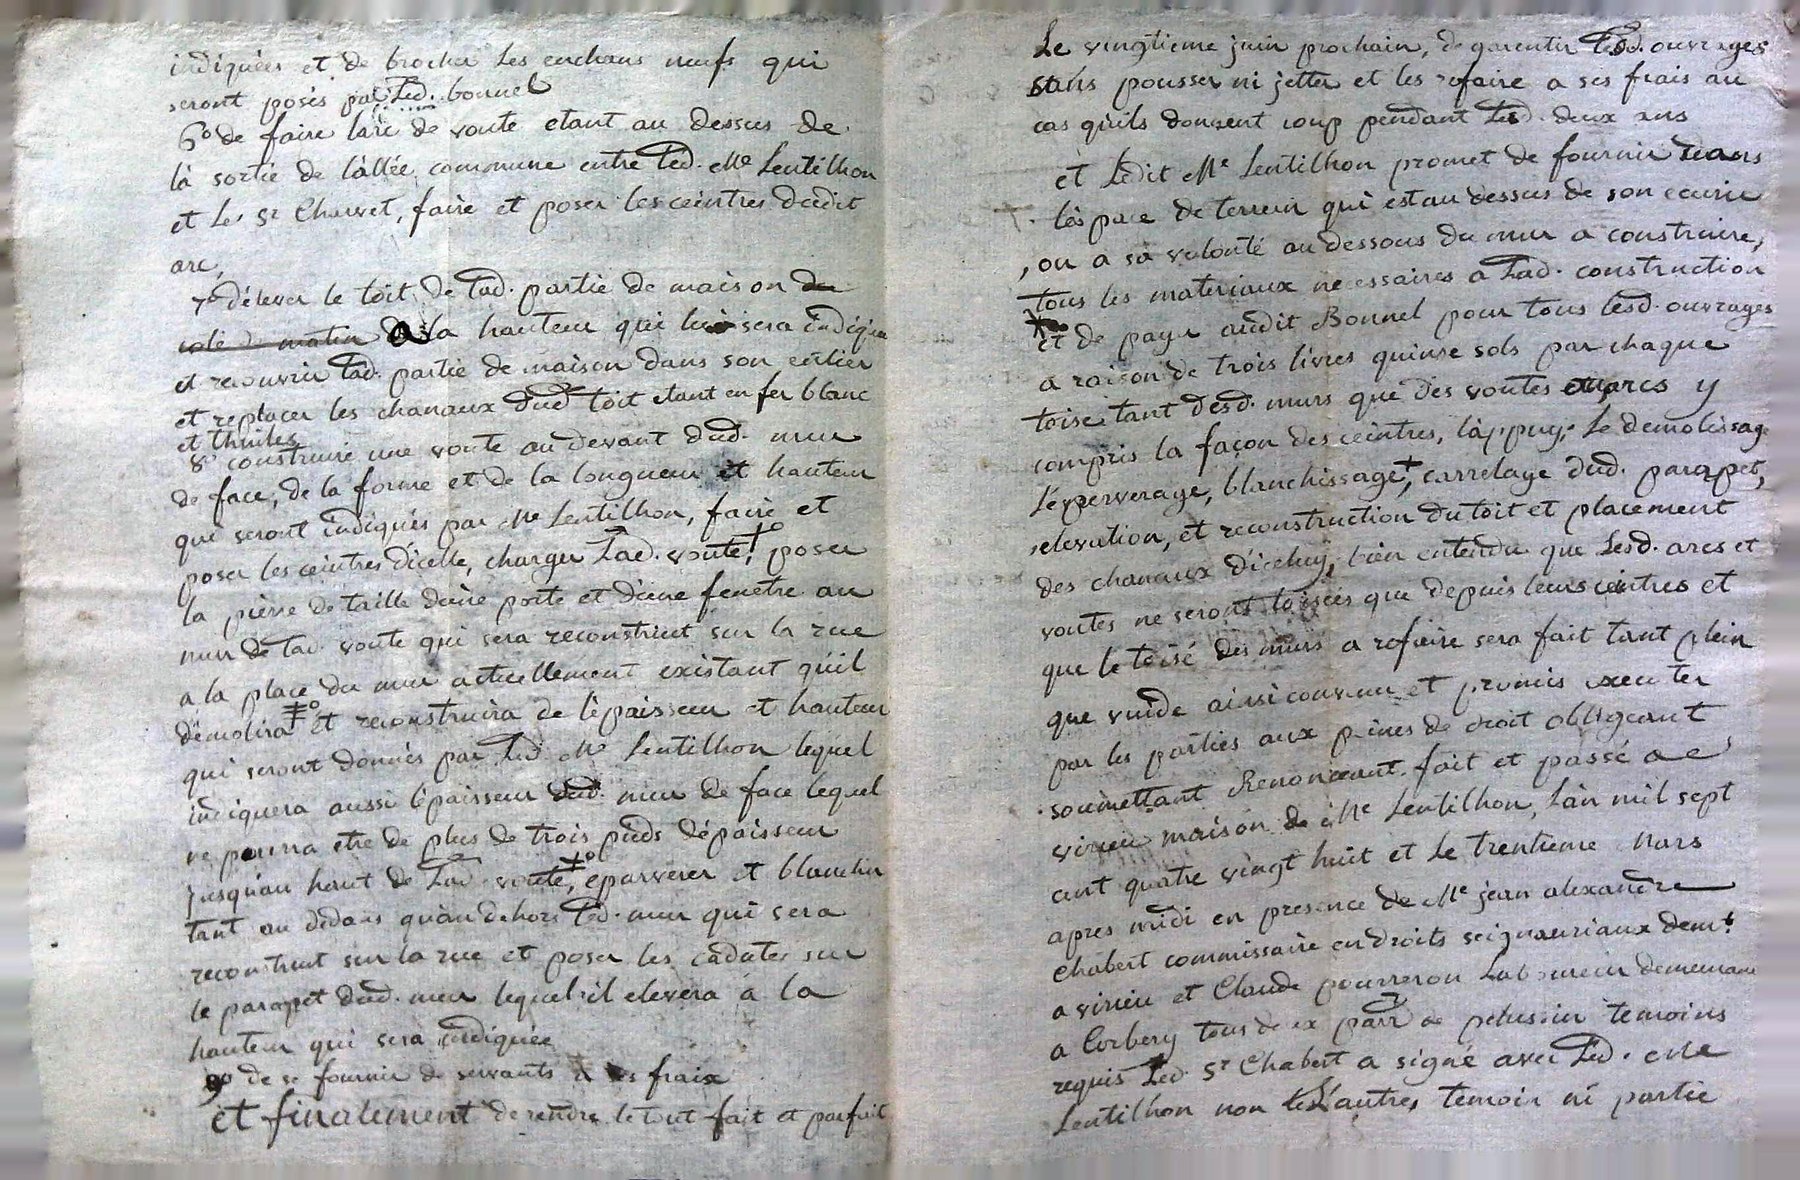 indiquées et de brocher les enchans neufs qui
seront posés par Led. bonnel
6° de faire larc de voute etant au dessus de
la sortie de lâllée commune entre Led. Me Lentilhon
et Le Sr Charvet, faire et poser les ceintres dudit
arc,
7° délever le toit de Lad. partie de maison du
coté du matin a la hauteur qui lui sera indiquée
et recouvrir Lad. partie de maison dans son entier
et replacer les chanaux dud. toit etant en fer blanc
et thuiles
8° construire une voute au devant dud. mur
de face, de la forme et de la longueur et hauteur
qui seront indiqués par Me Lentilhon, faire et
poser les ceintres dicelle, charger Lad. voute, poser
la pierre de taille dune porte et dune fenetre au
mur de Lad. voute qui sera reconstruit sur la rue
a la place du mur actuellement existant quil
démolira et reconstruira de lépaisseur et hauteur
qui seront donnés par Led. Me Lentilhon lequel
indiquera aussi lépaisseur dud. mur de face lequel
ne pourra etre de plus de trois pieds dépaisseur
jusquau haut de Lad. voute, eparverer et blanchir
tant au dedans quau dehors Led. mur qui sera
reconstruit sur la rue et poser les cadates sur
le parapet dud. mur lequel il elevera a la
hauteur qui sera indiquée
9° de se fournir de servants a ses fraix
et finalement de rendre le tout fait et parfait
Le vingtieme juin prochain, de garentir Lesd. ouvrages
sans pousser ni jetter et les refaire a ses frais au
cas quils donnent coup pendant Led. deux ans
et Ledit Me Lentilhon promet de fournir dans
léspace de terrein qui est au dessus de son ecurie
, ou a sa volonté au dessous du mur a construire,
tous les materiaux necessaires a Lad. construction
et de payer audit Bonnel pour tous Lesd. ouvrages
a raison de trois livres quinse sols par chaque
toise tant desd. murs que des voutes et arcs y
compris la façon des ceintres, lappuy, le demolissage
léperverage, blanchissage, carrelage dud. parapet,
elevation, et reconstruction du toit et placement
des chanaux dicelluy, bien entendu que Lesd. arcs et
voutes ne seront toisées que depuis leurs ceintres et
que le toisé des murs a refaire sera fait tant plein
que vuide ainsi convenu et promis executer
par les parties aux peines de droit obligeant
soumettant Renonceant. fait et passé a
virieu maison de Me Lentilhon, lan mil sept
cent quatre vingt huit et le trentieme Mars
apres midi en presence de Me jean alexandre
chabert commissaire en droits seigneuriaux demt.
a virieu et Claude pourreron Laboureur demeurant
a Corbery tous deux parr de pelussin temoins
requis Led. Sr Chabert a signé avec Led. Me
Lentilhon non Lautre temoin ni partie